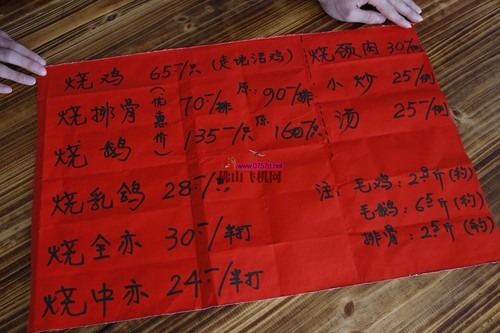 烧鸡 65元/只 (走地活鸡)
烧排骨 70元/排 原:90元/排
烧鹅 135元/只 原 160元/只
(优惠价)
烧乳鸽 28元/只
烧全亦 30元/半打
烧中亦 24元/半打
烧颈肉 30元/例
小炒 25元/例
汤 25元/例
注: 毛鸡:斤(约)
毛鹅:斤(约)
排骨:斤(约)
www.0757d.net
佛山飞机网